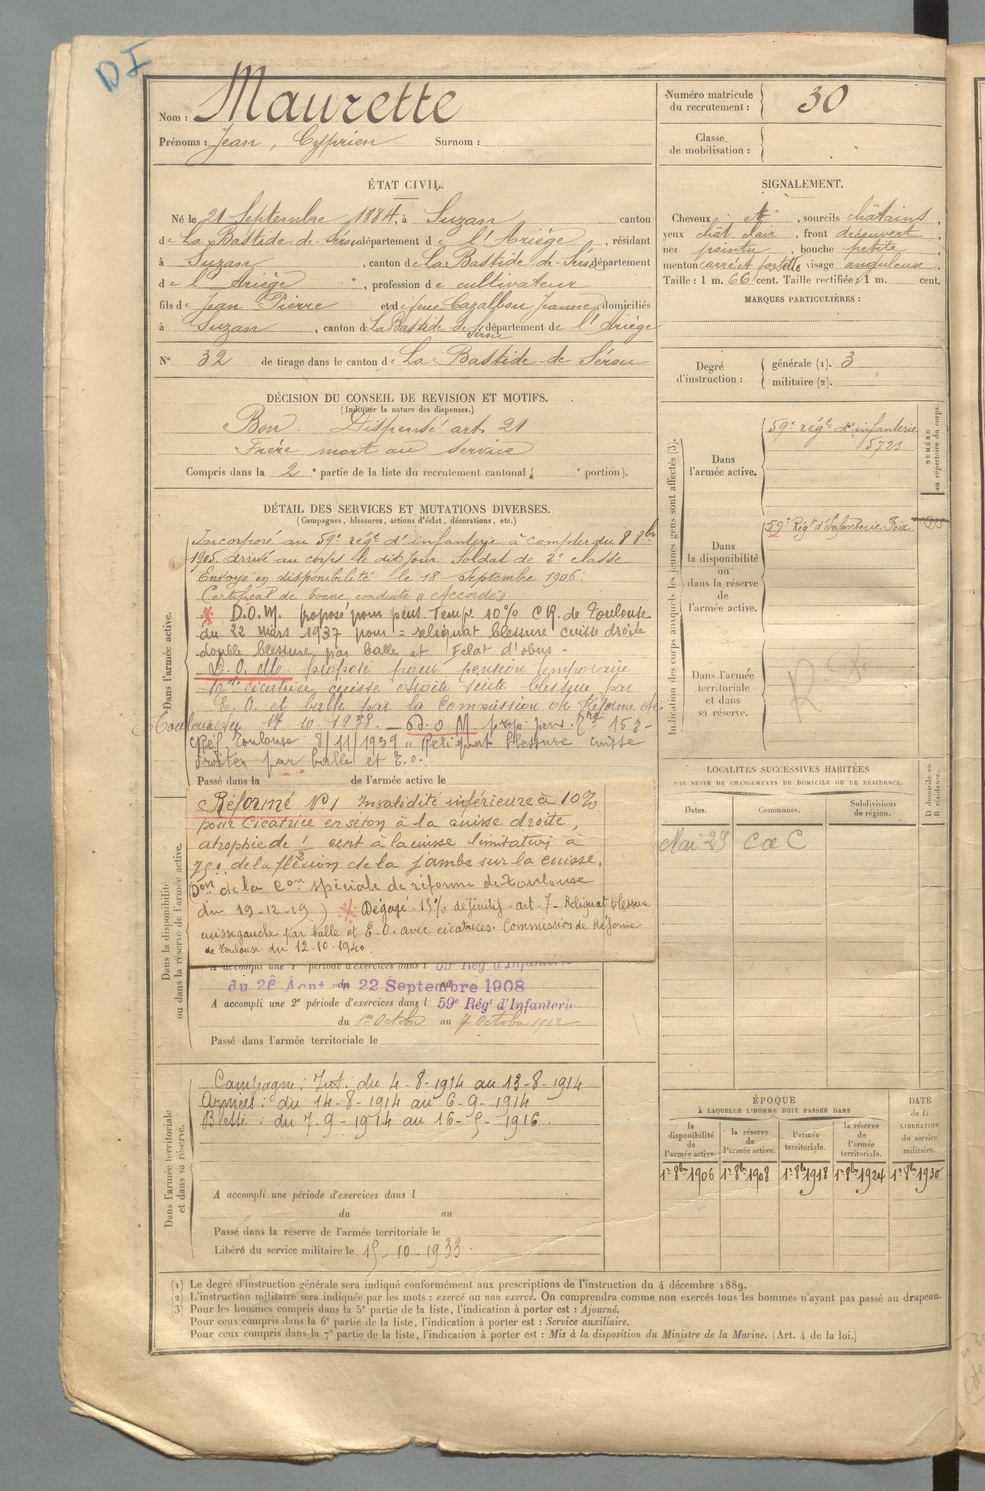 DI
Nom : Maurette
Prénoms : Jean, Cyprien Surnom :
Numéro matricule du recrutement : 30
Classe de mobilisation :
ÉTAT CIVIL.
Né le 21 Septembre 1884, à Suzan canton
de La Bastide-de-Sérou département de l'Ariège, résidant
à Suzan, canton de La Bastide-de-Sérou département
de l'Ariège, profession de cultivateur
fils de Jean Pierre et de feue Cazalbou Jeanne, domiciliés
à Suzan, canton de La Bastide de Sérou département de l'Ariège
N° 32 de tirage dans le canton de La Bastide-de-Sérou
SIGNALEMENT.
Cheveux et, sourcils châtains,
yeux chât. clair, front découvert,
nez pointu, bouche petite,
menton carré et fossette visage anguleuse.
Taille : 1 m. 66 cent. Taille rectifiée : 1 m. cent.
MARQUES PARTICULIÈRES :
Degré d'instruction : générale (1). 3
militaire (2).
DÉCISION DU CONSEIL DE REVISION ET MOTIFS.
(Indiquer la nature des dispenses.)
Bon. Dispensé art. 21
Frère mort au service
Compris dans la 2e partie de la liste du recrutement cantonal ( e portion).
DÉTAIL DES SERVICES ET MUTATIONS DIVERSES.
(Campagnes, blessures, actions d'éclat, décorations, etc.)
Dans l'armée active.
Incorporé au 59e régt d'infanterie à compter du 8 8bre
1905 arrivé au corps le dit jour Soldat de 2e classe
Envoyé en disponibilité le 18 Septembre 1906.
Certificat de bonne conduite « Accordé »
D.O.M. proposé pour pens. Temp. 10% CR. de Toulouse
du 22 mars 1937 pour = reliquat blessure cuisse droite
double blessure par balle et Eclat d'obus -
D.O.M. proposé pour pension temporaire
10% cicatrice cuisse droite suite blessure par
E.O. et balle par la Commission de Réforme de
Toulouse du 17 10 1938. D.O.M prop. pens.
Réf. Toulouse 8/11/1939 « Reliquat blessure cuisse
droite par balle et E.O.
Passé dans la de l'armée active le
Dans la disponibilité ou dans la réserve de l'armée active.
Réformé N°1 Invalidité inférieure à 10%
pour cicatrice en séton à la cuisse droite,
atrophie de 1 cent à la cuisse limitation à
75° de la flexion de la jambe sur la cuisse.
Don de la Com spéciale de réforme de Toulouse
du 19-12-19) Dégagé. 15% définitif - art. 7 - Reliquat blessure
cuisse gauche par balle et E.O. avec cicatrices. Commission de Réforme
de Toulouse du 12-10-1940.
A accompli une 1e période d'exercices dans l 59e Rég. d'Infanterie
du 26 Août au 22 Septembre 1908
A accompli une 2e période d'exercices dans l 59e Régt d'Infanterie
du 1er Octobre au 7 Octobre 1912
Passé dans l'armée territoriale le
Dans l'armée territoriale et dans sa réserve.
Campagne : Int. du 4-8-1914 au 13-8-1914
Armées : du 14-8-1914 au 6-9-1914
Blessé : du 7-9-1914 au 16-5-1916
A accompli une période d'exercices dans l
du au
Passé dans la réserve de l'armée territoriale le
Libéré du service militaire le 15-10-1933.
Indication des corps auxquels les jeunes gens sont affectés (3).
NUMÉRO au répertoire du corps.
Dans l'armée active. 59e régt d'infanterie
5723
Dans la disponibilité ou dans la réserve de l'armée active. 59e Régt d'Infanterie Foix
Dans l'armée territoriale et dans sa réserve.
LOCALITÉS SUCCESSIVES HABITÉES
PAR SUITE DE CHANGEMENTS DE DOMICILE OU DE RÉSIDENCE.
Dates. Communes. Subdivisions de région. D domicile ou R résidence.
Mai 29 C d C
ÉPOQUE
À LAQUELLE L'HOMME DOIT PASSER DANS
DATE de la LIBÉRATION du service militaire.
la disponibilité de l'armée active. la réserve de l'armée active. l'armée territoriale. la réserve de l'armée territoriale.
1er 8bre 1906 1er 8bre 1908 1er 8bre 1918 1er 8bre 1924 1er 8bre 1930
(1) Le degré d'instruction générale sera indiqué conformément aux prescriptions de l'instruction du 4 décembre 1889.
(2) L'instruction militaire sera indiquée par les mots : exercé ou non exercé. On comprendra comme non exercés tous les hommes n'ayant pas passé au drapeau.
3) Pour les hommes compris dans la 5e partie de la liste, l'indication à porter est : Ajourné.
Pour ceux compris dans la 6e partie de la liste, l'indication à porter est : Service auxiliaire.
Pour ceux compris dans la 7e partie de la liste, l'indication à porter est : Mis à la disposition du Ministre de la Marine. (Art. 4 de la loi.)